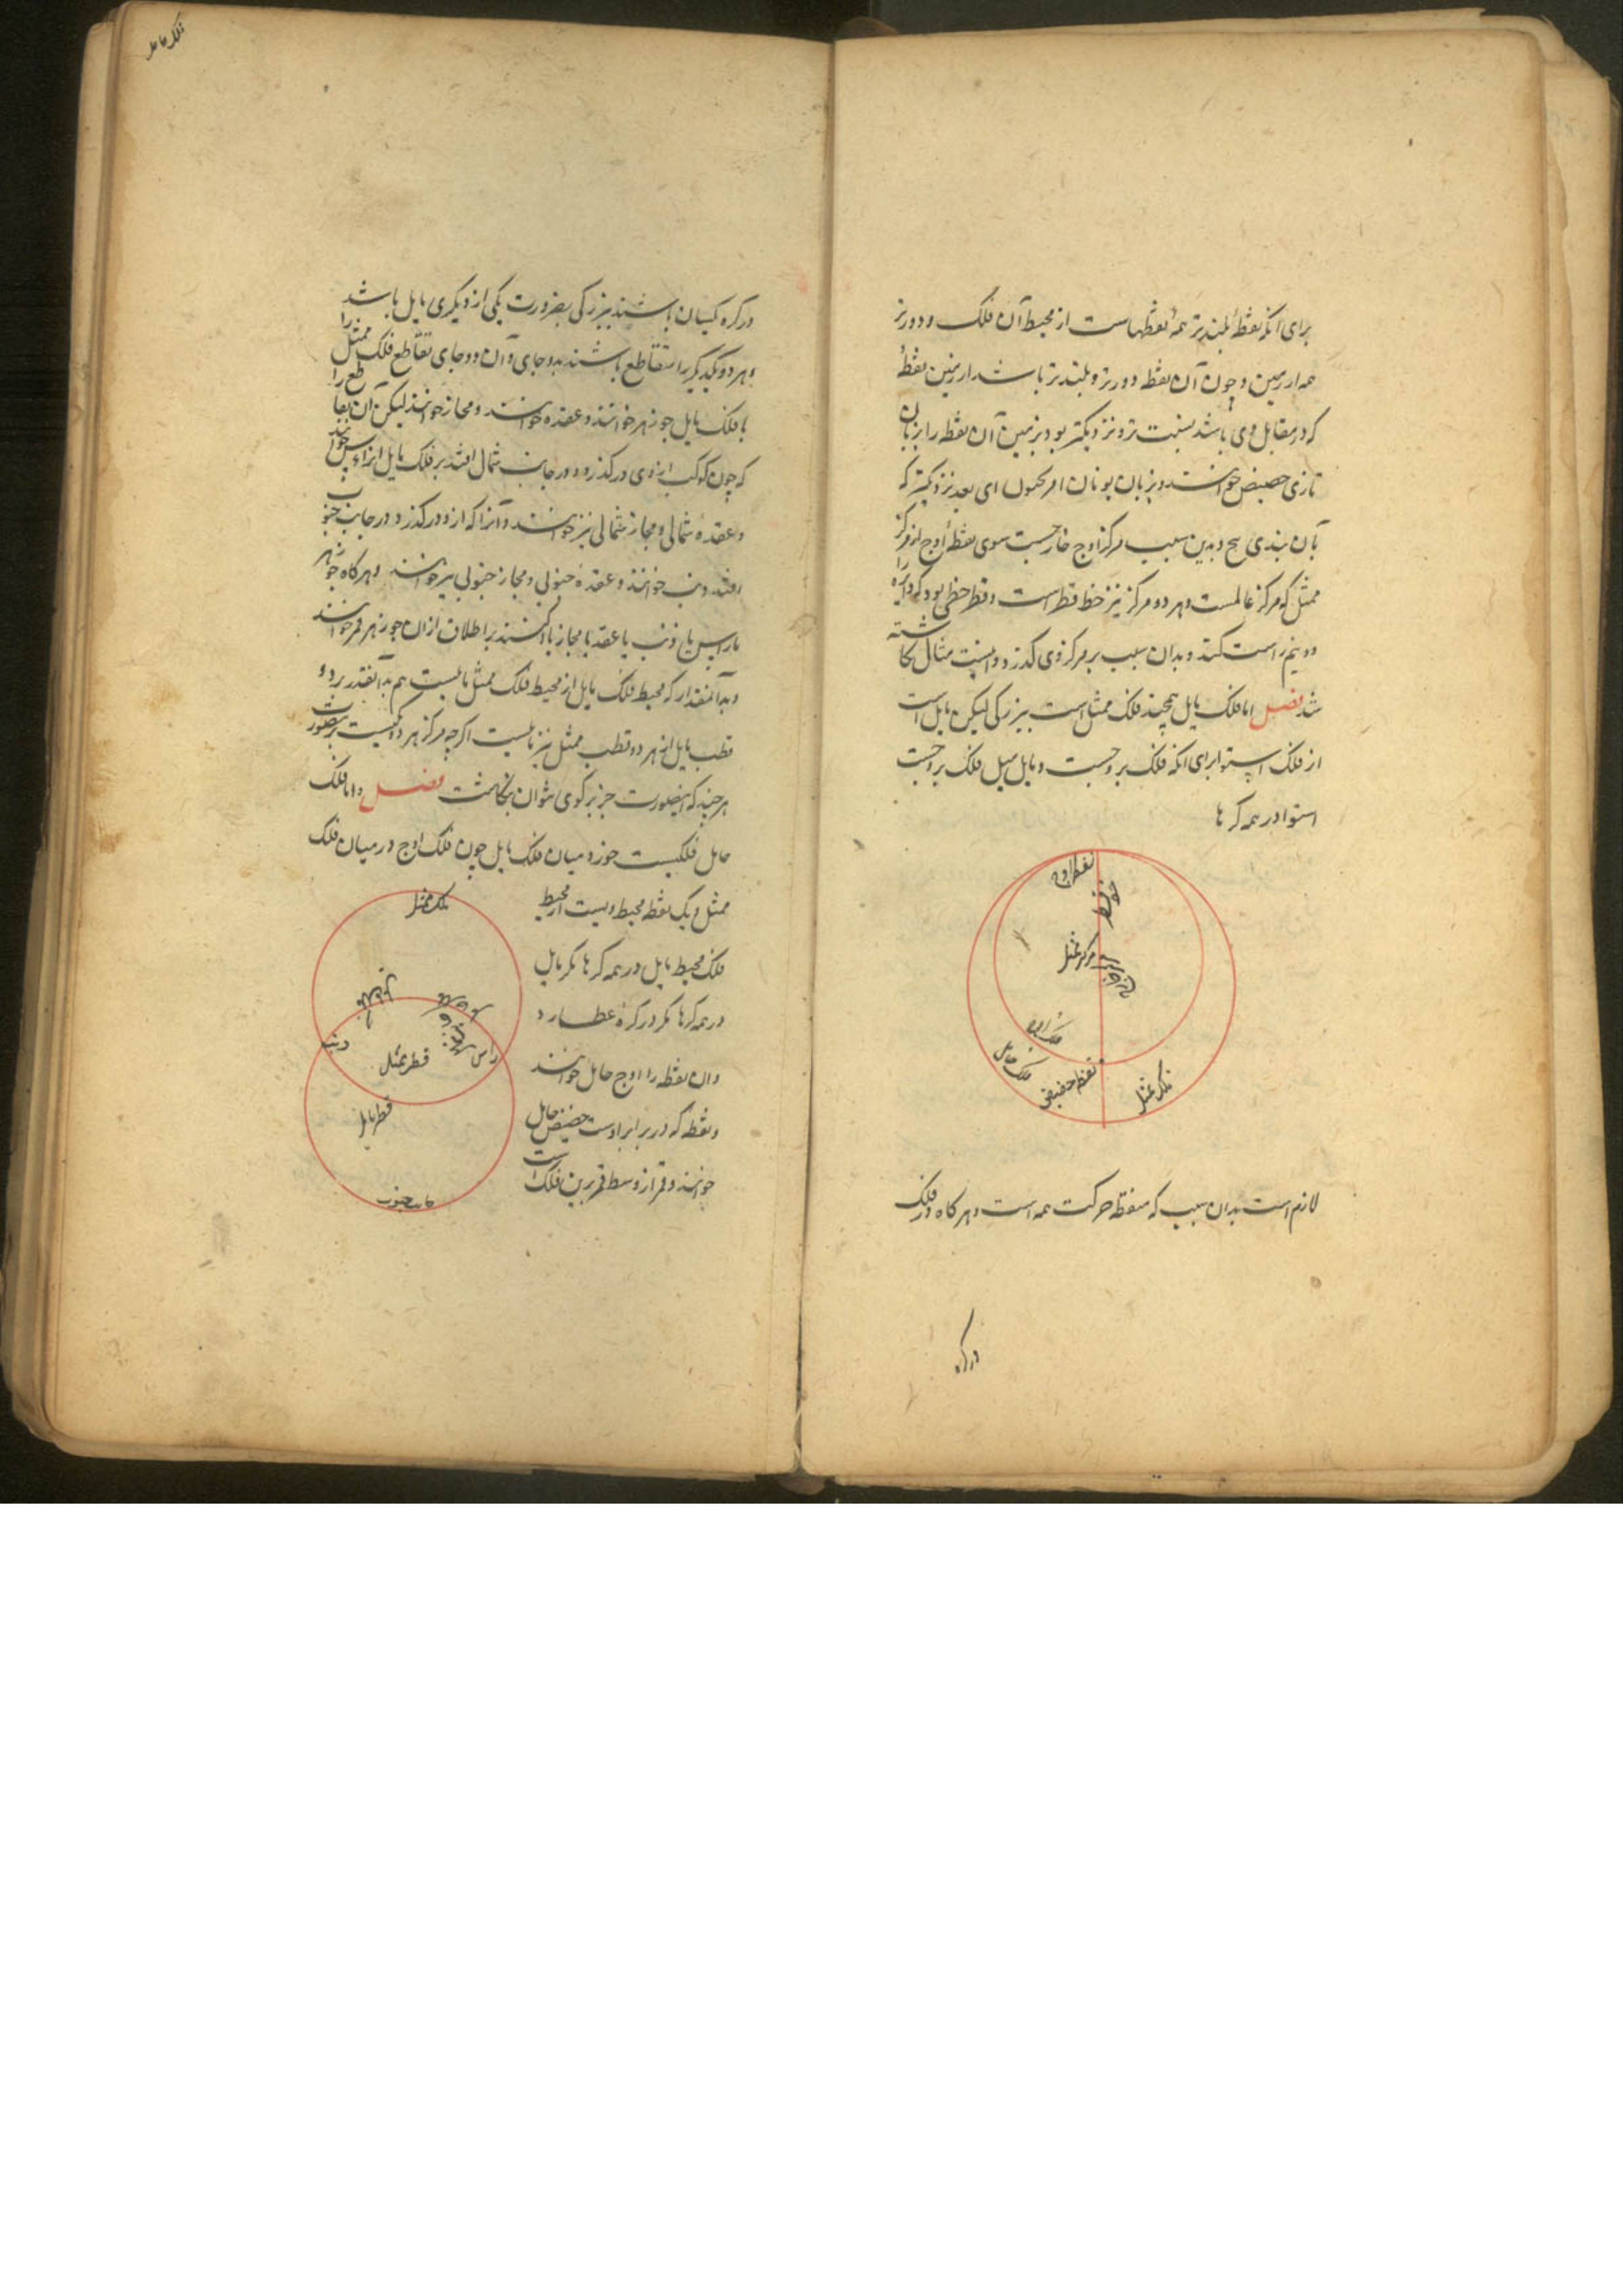 برای آنکه نقطهٔ بلندتر همهٔ نقطهاست از محیط آن فلک و دورتر
همه از زمین و چون آن نقطه دورتر و بلندتر باشد از زمین نقطهٔ
که در مقابل وی باشد پست تر و نزدیکتر بود بزمین آن نقطه را بزبان
تازی حضیض خوانند و بزبان یونان ای بعد نزدیکتر که
بآن بندی هیچ و بدین سبب مرکز اوج خارجست سوی نقطهٔ اوج از مرکز
ممثل که مرکز عالمست و هر دو مرکز نیز خط قطر است و قطر خطی بود که دایره را
دو نیم راست کند و بدان سبب بر مرکز وی گذرد و اینست مثال نگاشته
شد فصل اما فلک مایل همچند فلک ممثل است ببزرگی لیکن مایل است
از فلک استوا برای آنکه فلک بروجست و مایل میل فلک بروجست
استوا در همه کرها
نقطه اوج
مرکز ممثل
فلک اوج
فلک مایل
نقطه حضیض
فلک ممثل
لازم است بدان سبب که منطقه حرکت همه است و هر گاه دو فلک
در کره
فلک حامل
در کره یکسان باشند ببزرگی بضرورت یکی از دیگری مایل باشد
و هر دو یکدیگر را متقاطع باشند بدو جای و آن دو جای تقاطع فلک ممثل را
با فلک مایل جوزهر خوانند و عقده خوانند و مجاز خوانند لیکن آن تقاطع را
که چون کوکب از وی درگذرد و در جانب شمال افتد بر فلک مایل انرا راس خوانند
و عقدهٔ شمالی و مجاز شمالی نیز خوانند و آنرا که ازو درگذرد در جانب جنوب
افتد ذنب خوانند و عقدهٔ جنوبی و مجاز جنوبی نیز خوانند و هر گاه جوزهر
یا راس یا ذنب یا عقد یا مجاز یاد کنند بر اطلاق از آن جوزهر قمر خوانند
و بدآنمقدار که محیط فلک مایل از محیط فلک ممثل مایلست هم بدآنقدر بر دو
قطب مایل از هر دو قطب ممثل نیز مایلست اگرچه مرکز هر دو یکیست برینصورت
هر چند که اینصورت جز بر گوی نتوان نگاشت فصل و اما فلک
حامل فلکیست خرد میان فلک مایل چون فلک اوج در میان فلک
ممثل و یک نقطه محیط ویست از محیط
فلک محیط مایل در همه کرها مگر مایل
در همه کرها مگر در کرهٔ عطارد
و ان نقطه را اوج حامل خوانند
و نقطه که در برابر اوست حضیض حامل
خوانند و قمر از وسط قمر بدین فلک است
فلک ممثل
ذنب
راس
قطر ممثل
قطر مایل
جانب جنوب